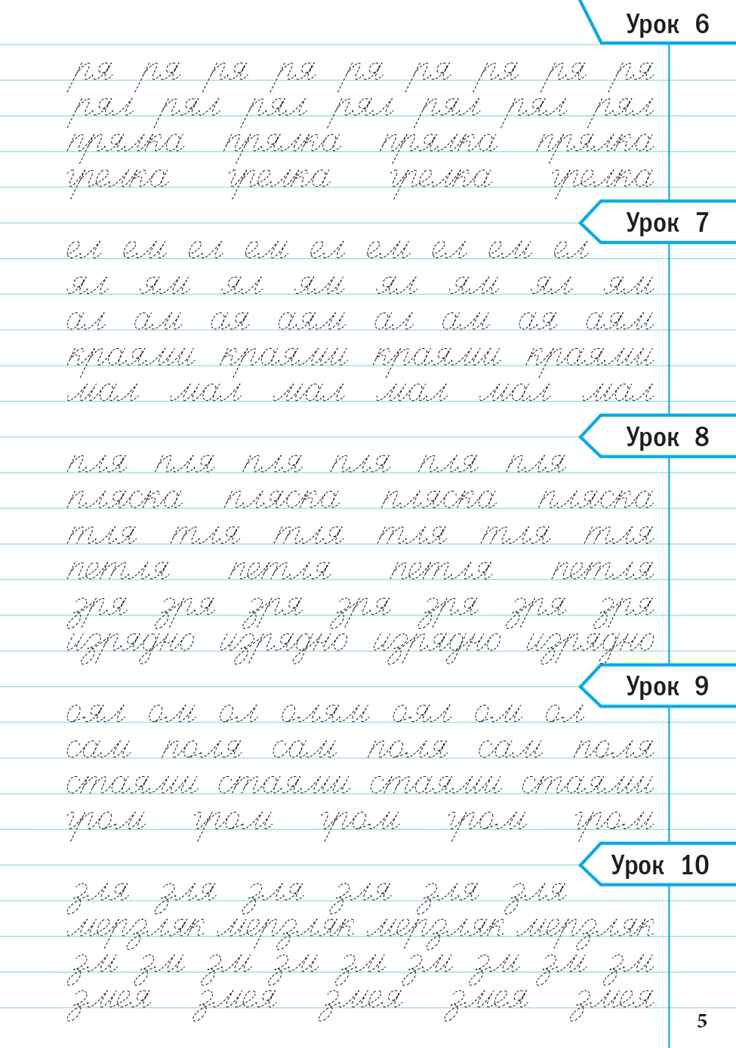 Урок 6
ря ря ря ря ря ря ря ря ря
рял рял рял рял рял рял рял
прялка прялка прялка прялка
грелка грелка грелка грелка
Урок 7
ел ем ел ем ел ем ел ем ел
ял ям ял ям ял ям ял ям
ал ам ая аям ал ам ая аям
краями краями краями краями
мал мал мал мал мал мал
Урок 8
пля пля пля пля пля пля
пляска пляска пляска пляска
тля тля тля тля тля тля
петля петля петля петля
зря зря зря зря зря зря зря
изрядно изрядно изрядно изрядно
Урок 9
оял ом ол олям оял ом ол
сам поля сам поля сам поля
стаями стаями стаями стаями
гром гром гром гром гром
Урок 10
зля зля зля зля зля зля
мерзляк мерзляк мерзляк мерзляк
зм зм зм зм зм зм зм зм зм
змея змея змея змея змея
5